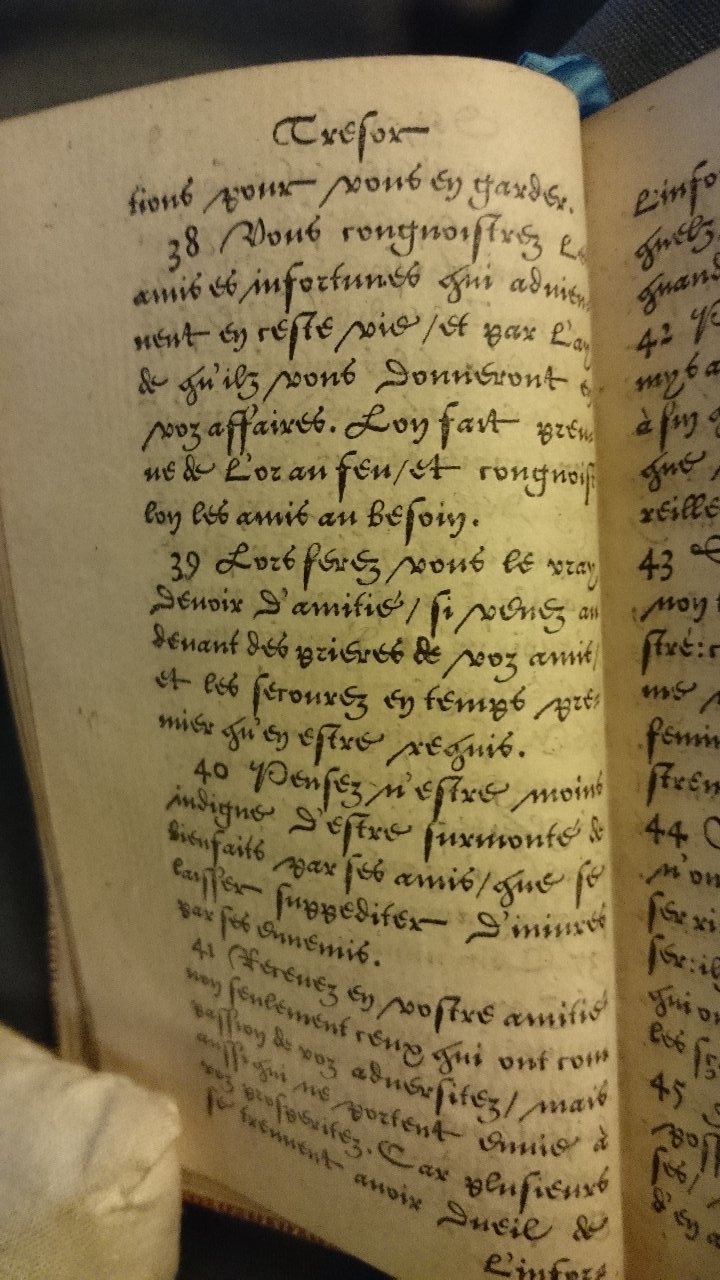 Tresor
tions pour vous en garder.
38 Vous congnoistrez le
amis es infortunes qui advien
nent en ceste vie / et par l'ay
de qu'ilz vous donneront
voz affaires. Lon fait preu
ve de l'or au feu / et congnois
lon les amis au besoin.
39 Lors ferez vous le vray
devoir d'amitié / si venez au
devant des prieres de voz amis /
et les secourez en temps pre-
mier qu'en estre requis.
40 Pensez n'estre moins
indigne d'estre surmonté de
bienfaits par ses amis / que se
laisser suppediter d'iniures
par ses ennemis.
41 Recevez en vostre amitié
non seulement ceux qui ont com
passion de voz adversitez / mais
aussi qui ne portent envie à
voz prosperitez. Car plusieurs
se treuvent avoir dueil de
l'infor
L'info
quelz
quand
42
mys a
à fin q
que
reille
43
non
stré: c
me
femin
stren
44
n'on
ser ri
ser: il
qui on
les
45
poss
ses /
d'en a